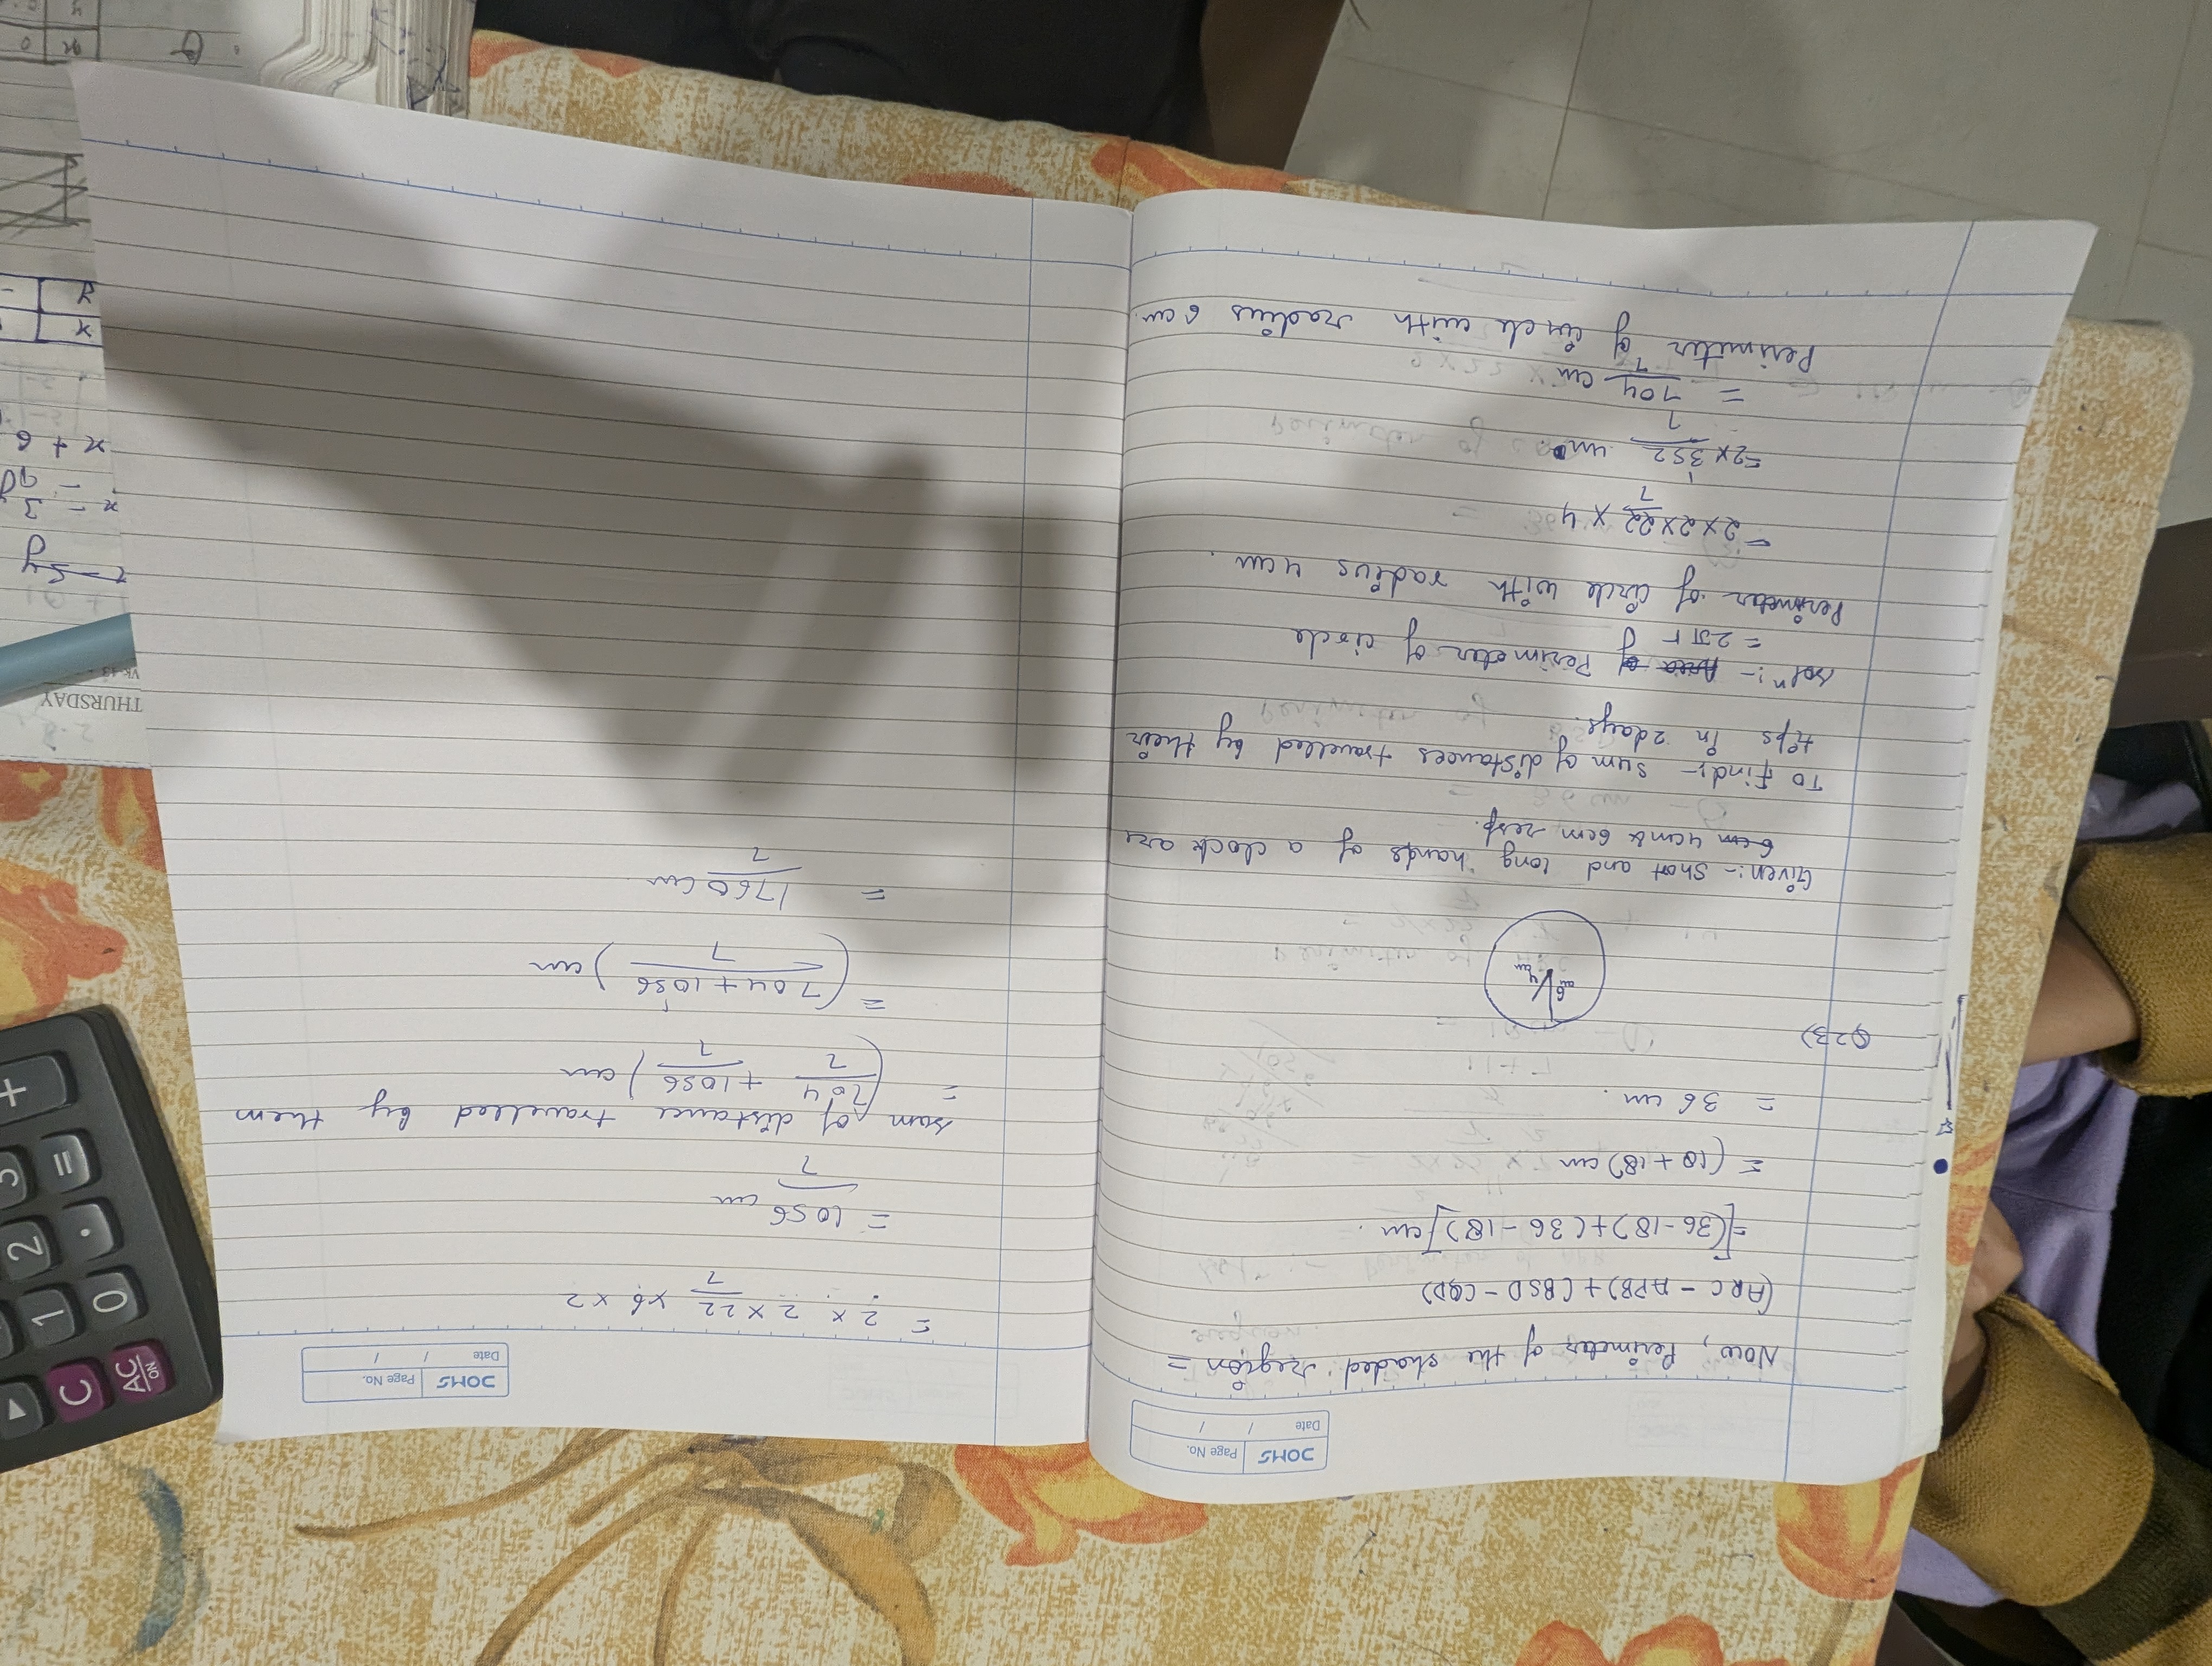 DOMS Page No.
Date / /
Now, Perimeter of the shaded region =
(ARC - APB) + (BSD - CQD)
= [(36-18) + (36-18)] cm.
= (18 + 18) cm
= 36 cm.
Q23)
6 cm 4 cm
Given:- Short and long hands of a clock are
6cm 4cm & 6cm resp.
To find:- sum of distances travelled by their
tips in 2 days.
Soln:- Area of Perimeter of circle
= 2πr
Perimeter of circle with radius 4cm.
= 2 × 2 × 22/7 × 4
= 2 × 352/7 cm
= 704/7 cm
Perimeter of circle with radius 6 cm.
DOMS Page No.
Date / /
= 2 × 2 × 22/7 × 6 × 2
= 1056/7 cm
sum of distance travelled by them
= (704/7 + 1056/7) cm
= (704 + 1056/7) cm
= 1760/7 cm
THURSDAY
x + 6
x
y
AC/ON
C
0
1
.
2
=
3
+